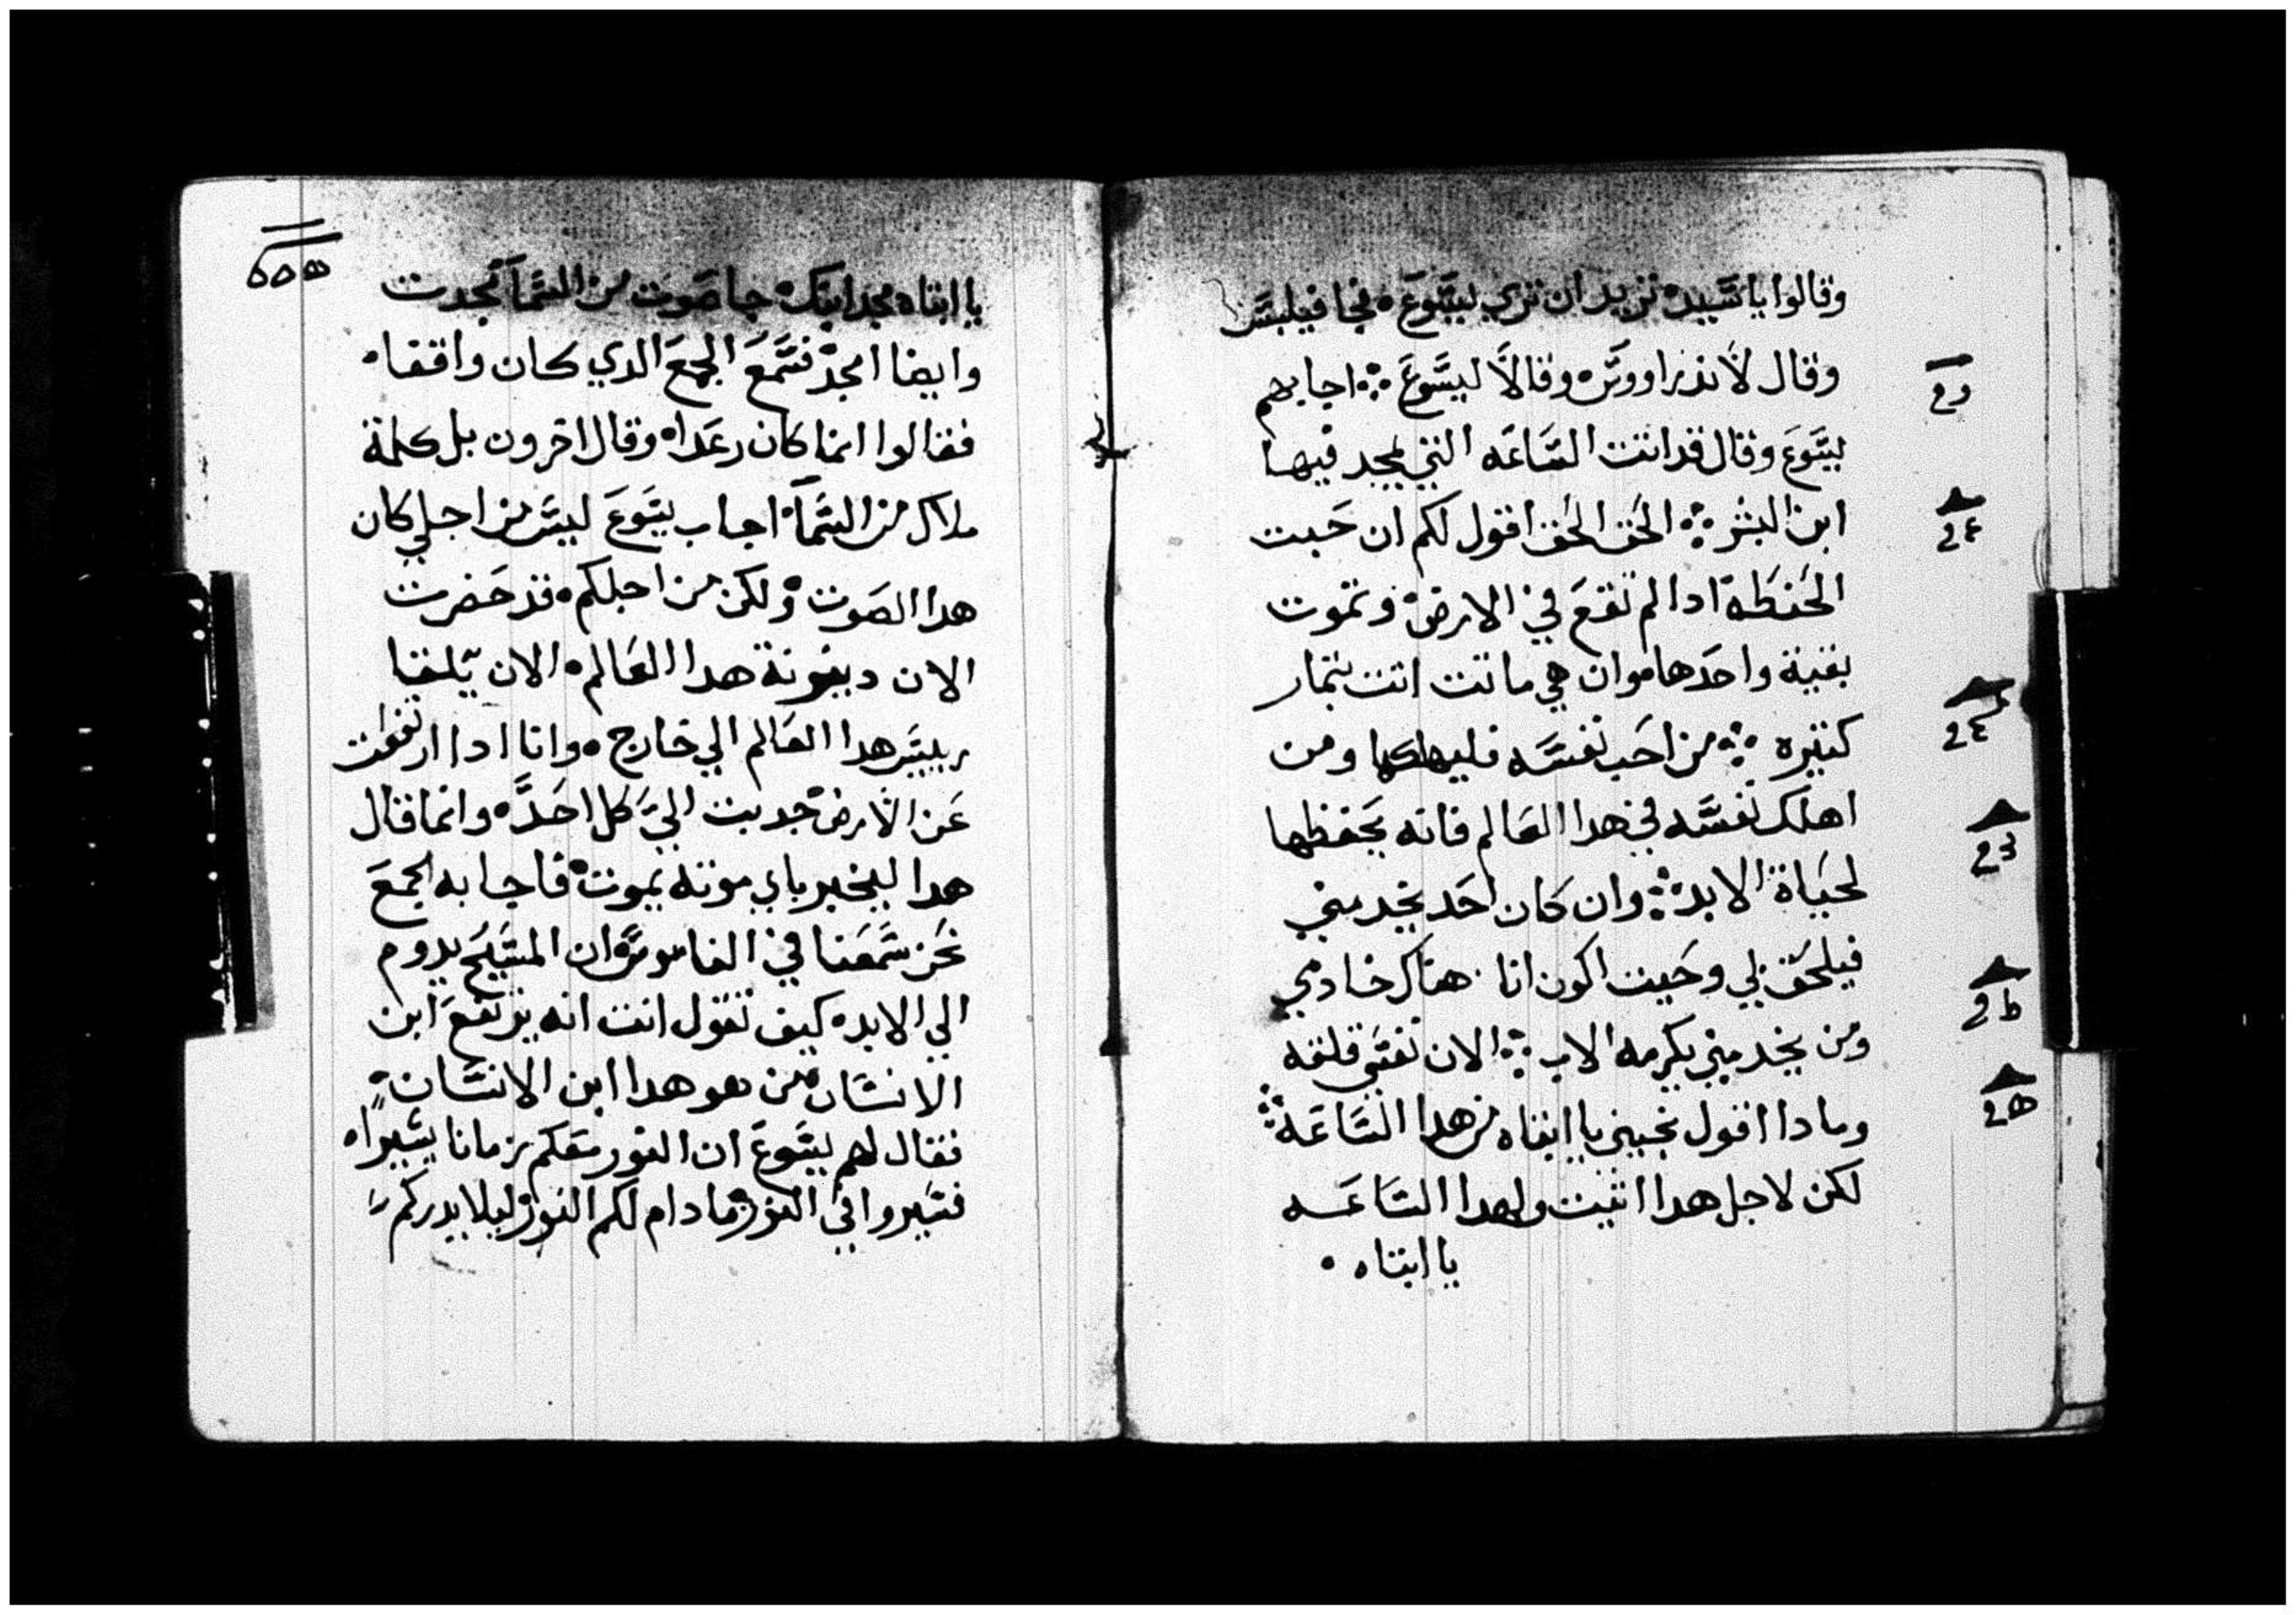 وقالوا يا سيد نريد ان نري يسوع فجا فيلبس
وقال لاندراووس وقالا ليسوع اجابهم
يسوع وقال قد اتت الساعه التي يمجد فيها
ابن البشر الحق الحق اقول لكم ان حبت
الحنطه ادا لم تقع في الارض وتموت
بقيه واحدها وان هي ماتت اتت بتمار
كتيره من احب نفسه فليهلكها ومن
اهلك نفسه في هدا العالم فانه يحفظها
لحياة الابد وان كان احد يخدمني
فيلحق بي وحيت اكون انا هناك خادمي
ومن يخدمني يكرمه الاب الان نفسي قلقه
ومادا اقول نجيني يا ابتاه من هدا الساعه
لكن لاجل هدا اتيت ولهدا الساعه
يا ابتاه
يا ابتاه مجد ابنك جا صوت من السما مجدت
وايضا امجد فسمع الجمع الدي كان واقفا
فقالوا انما كان رعدا وقال اخرون بل كلمة
ملاك من السما اجاب يسوع ليس من اجلي كان
هدا الصوت ولكن من اجلكم قد حضرت
الان دينونة هدا العالم الان يلقا
رييس هدا العالم الي خارج وانا ادا ارتفعت
عن الارض جدبت الي كل احد وانما قال
هدا ليخبر باي موته يموت فاجابه الجمع
نحن سمعنا في الناموس ان المسيح يدوم
الي الابد كيف تقول انت انه يرتفع ابن
الانسان من هو هدا ابن الانسان
فقال لهم يسوع ان النور معكم زمانا يسيرا
فسيروا في النور ما دام لكم النور ليلا يدرككم